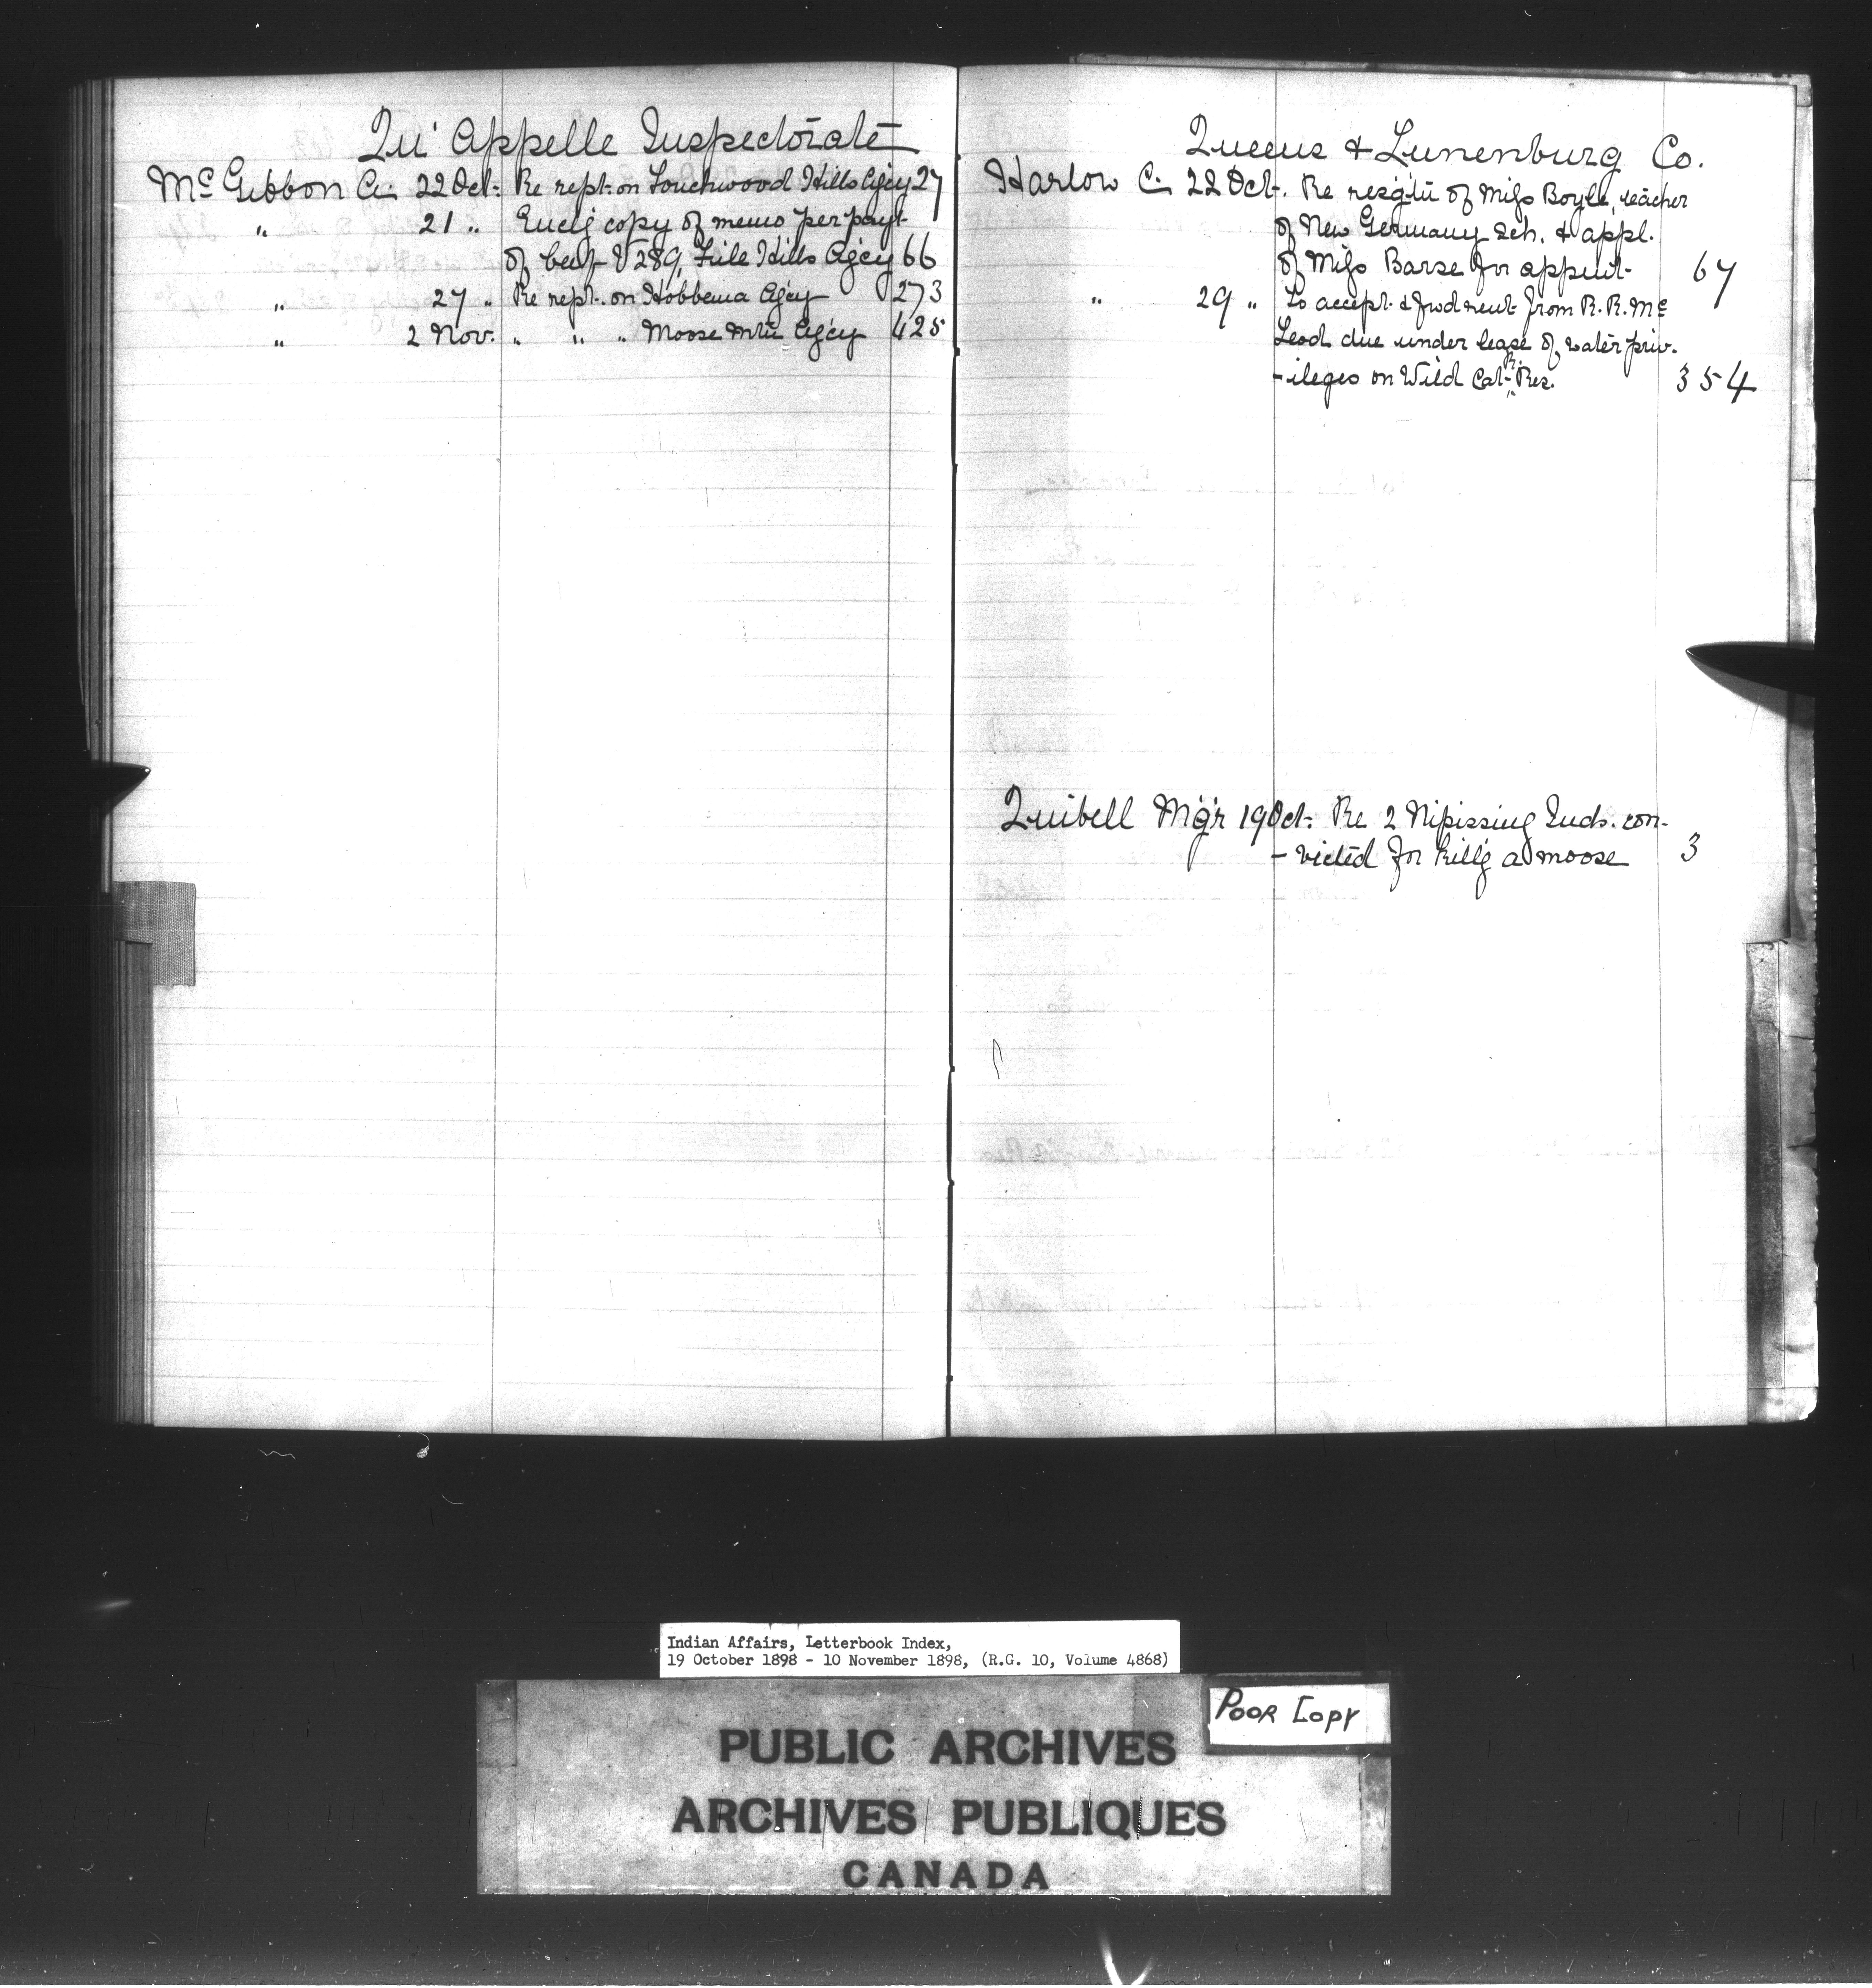 Qu'Appelle Inspectorate
McGibbon A. 22 Oct. Re rept. on Touchwood Hills Agcy 27
" 21 " Enclg copy of memo per payt.
of beef V 289, File Hills Agcy 66
" 27 " Re rept. on Hobbema Agcy 273
" 2 Nov. " " " Moose Mtn Agcy 425
Queens & Lunenburg Co.
Harlow C. 22 Oct. Re resg'tn of Miss Boyle, teacher
of New Germany Sch. & appl.
of Miss Barse for appmt. 67
" 29 " To accept & fwd rent from R. R. Mc
Leod due under lease of water priv-
-ileges on Wild Cat R. Res. 354
Quibell Mg'r 19 Oct. Re 2 Nipissing Inds. con-
-victed for kill'g a moose 3
Indian Affairs, Letterbook Index,
19 October 1898 - 10 November 1898, (R.G. 10, Volume 4868)
POOR COPY
PUBLIC ARCHIVES
ARCHIVES PUBLIQUES
CANADA